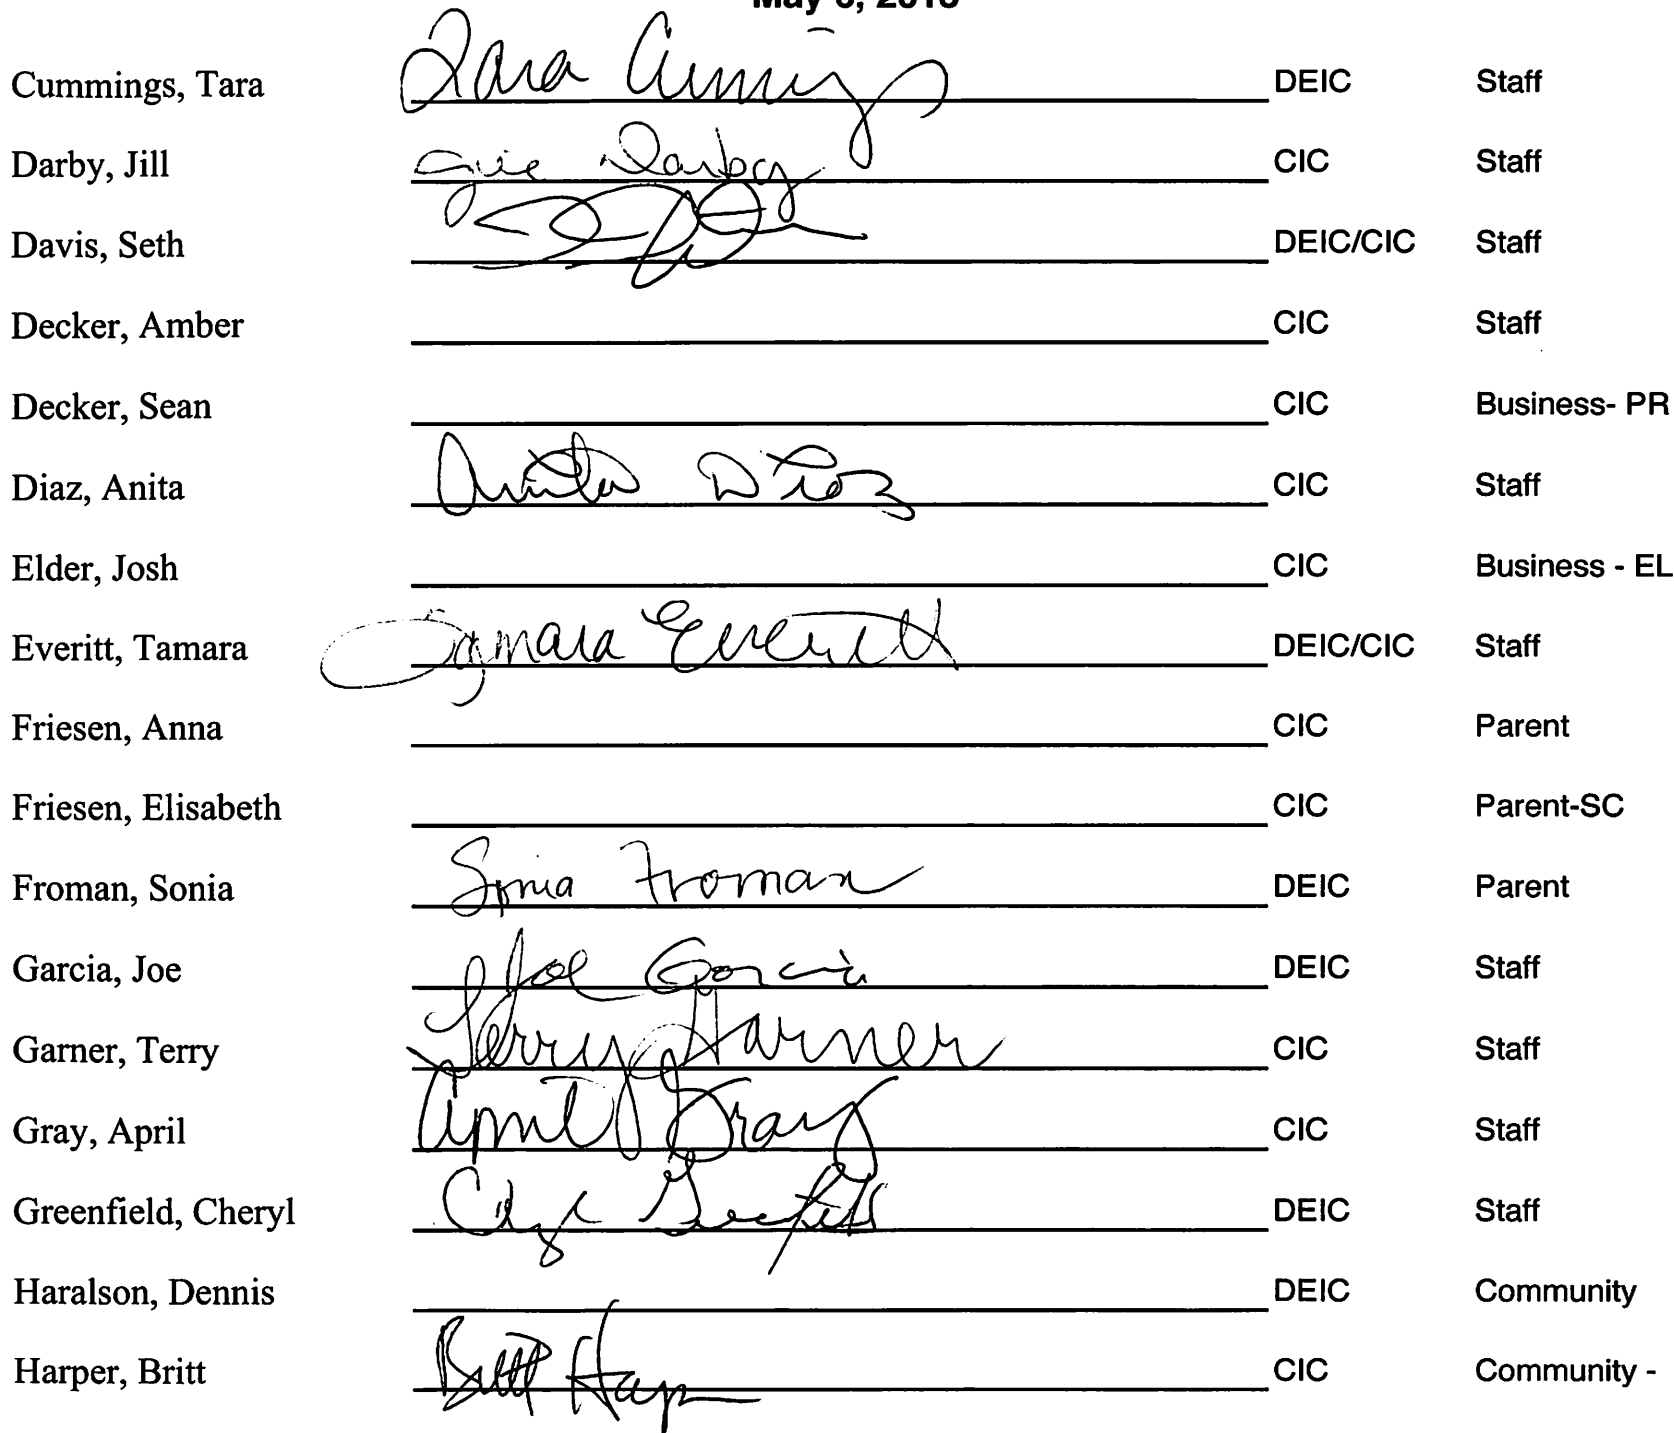 Cummings, Tara Tara Cummings DEIC Staff
Darby, Jill Jill Darby CIC Staff
Davis, Seth DEIC/CIC Staff
Decker, Amber CIC Staff
Decker, Sean CIC Business- PR
Diaz, Anita Anita Diaz CIC Staff
Elder, Josh CIC Business - EL
Everitt, Tamara Tamara Everitt DEIC/CIC Staff
Friesen, Anna CIC Parent
Friesen, Elisabeth CIC Parent-SC
Froman, Sonia Sonia Froman DEIC Parent
Garcia, Joe Joe Garcia DEIC Staff
Garner, Terry Terry Garner CIC Staff
Gray, April April Gray CIC Staff
Greenfield, Cheryl DEIC Staff
Haralson, Dennis DEIC Community
Harper, Britt Britt Harper CIC Community -